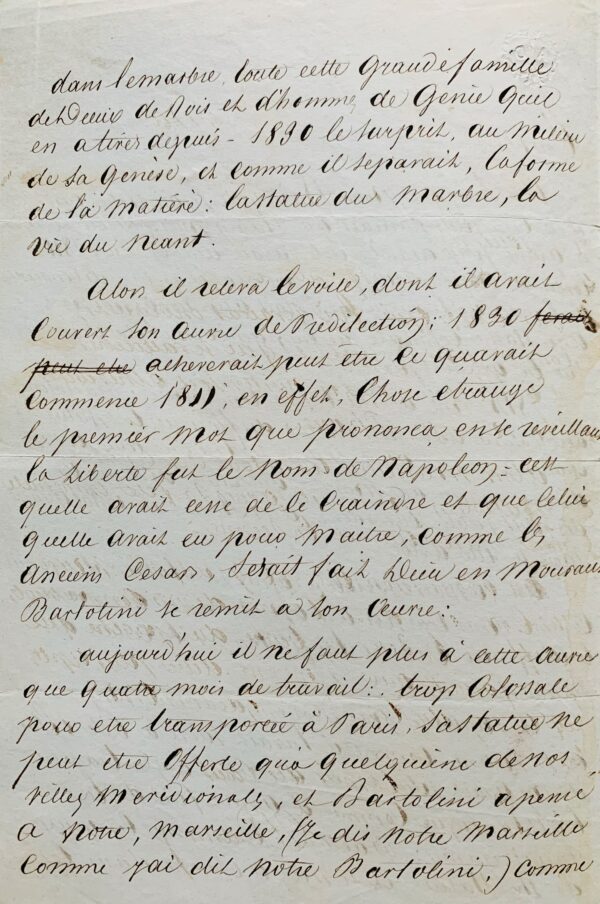 dans le marbre toute cette Grande famille
de Dieux de Rois et d'homme de Genie quil
en a tirés depuis - 1830 le surprit, au milieu
de sa Genèse, et comme il separait, la forme
de la matière: la statue du Marbre, la
vie du Neant.
Alors il releva le voile, dont il avait
Couvert son œuvre de Predilection; 1830 ferait
peut etre acheverait peut être Ce quavait
Commence 1811, en effet, Chose etrange
le premier mot que prononca en se reveillant
la Liberte fut le Nom de Napoleon = cest
quelle avait cesse de le Craindre et que Celui
quelle avait eu pour Maitre, comme les
Anciens Cesars, Setait fait Dieu en Mourant
Bartolini se remit a son Œuvre:
aujourd'hui il ne faut plus à cette Œuvre
que quatre mois de travail: trop Colossale
pour etre transportée à Paris, Sa statue ne
peut etre Offerte qu'a quelqu'une de nos
villes Meridionales, et Bartolini a pensé
a Notre, Marseille, (Je dis Notre Marseille
Comme j'ai dit Notre Bartolini,) Comme